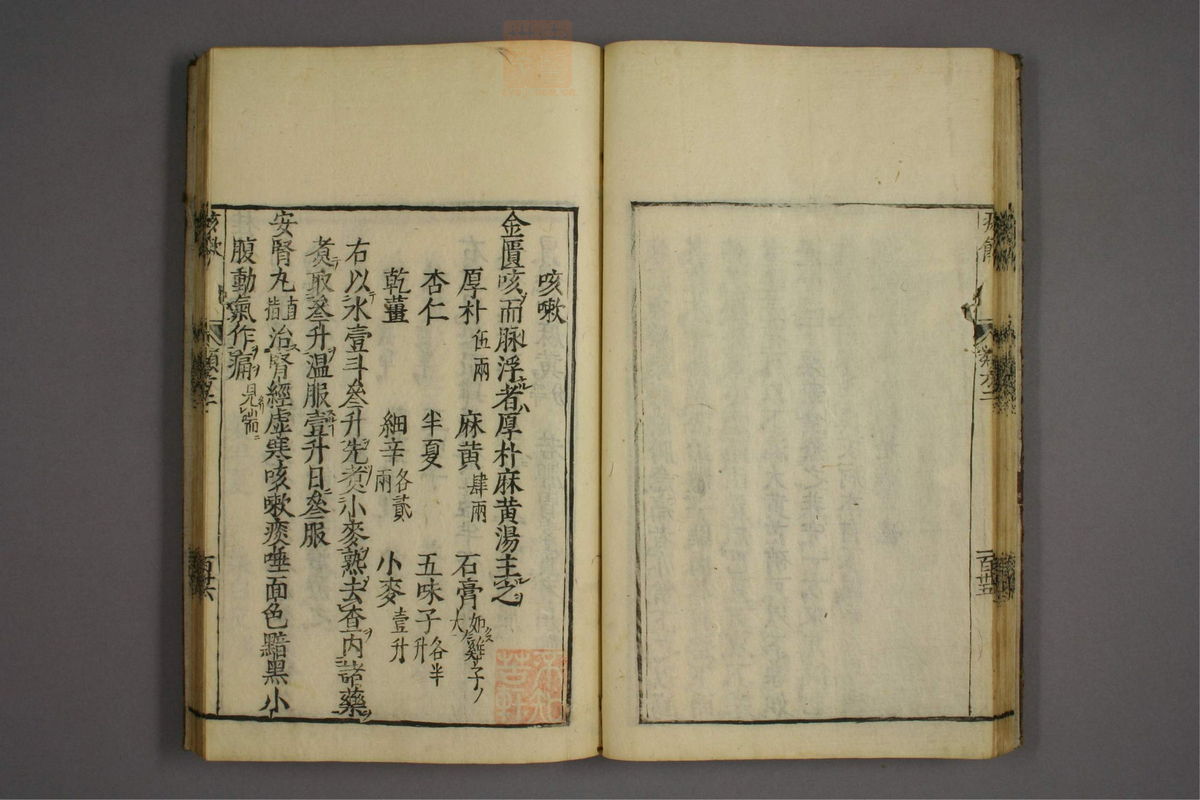 百廿五
咳嗽
金匱咳而脉浮者厚朴麻黄湯主之
厚朴伍兩　麻黄肆兩　石膏如雞子大
杏仁　半夏　五味子各半升
乾薑　細辛各貳兩　小麥壹升
右以水壹斗叄升先煑小麥熟去査内諸藥
煑取叄升温服壹升日叄服
安腎丸直指治腎經虚寒咳嗽痰唾面色黯黒小
腹動氣作痛見喘
咳嗽
百廿六